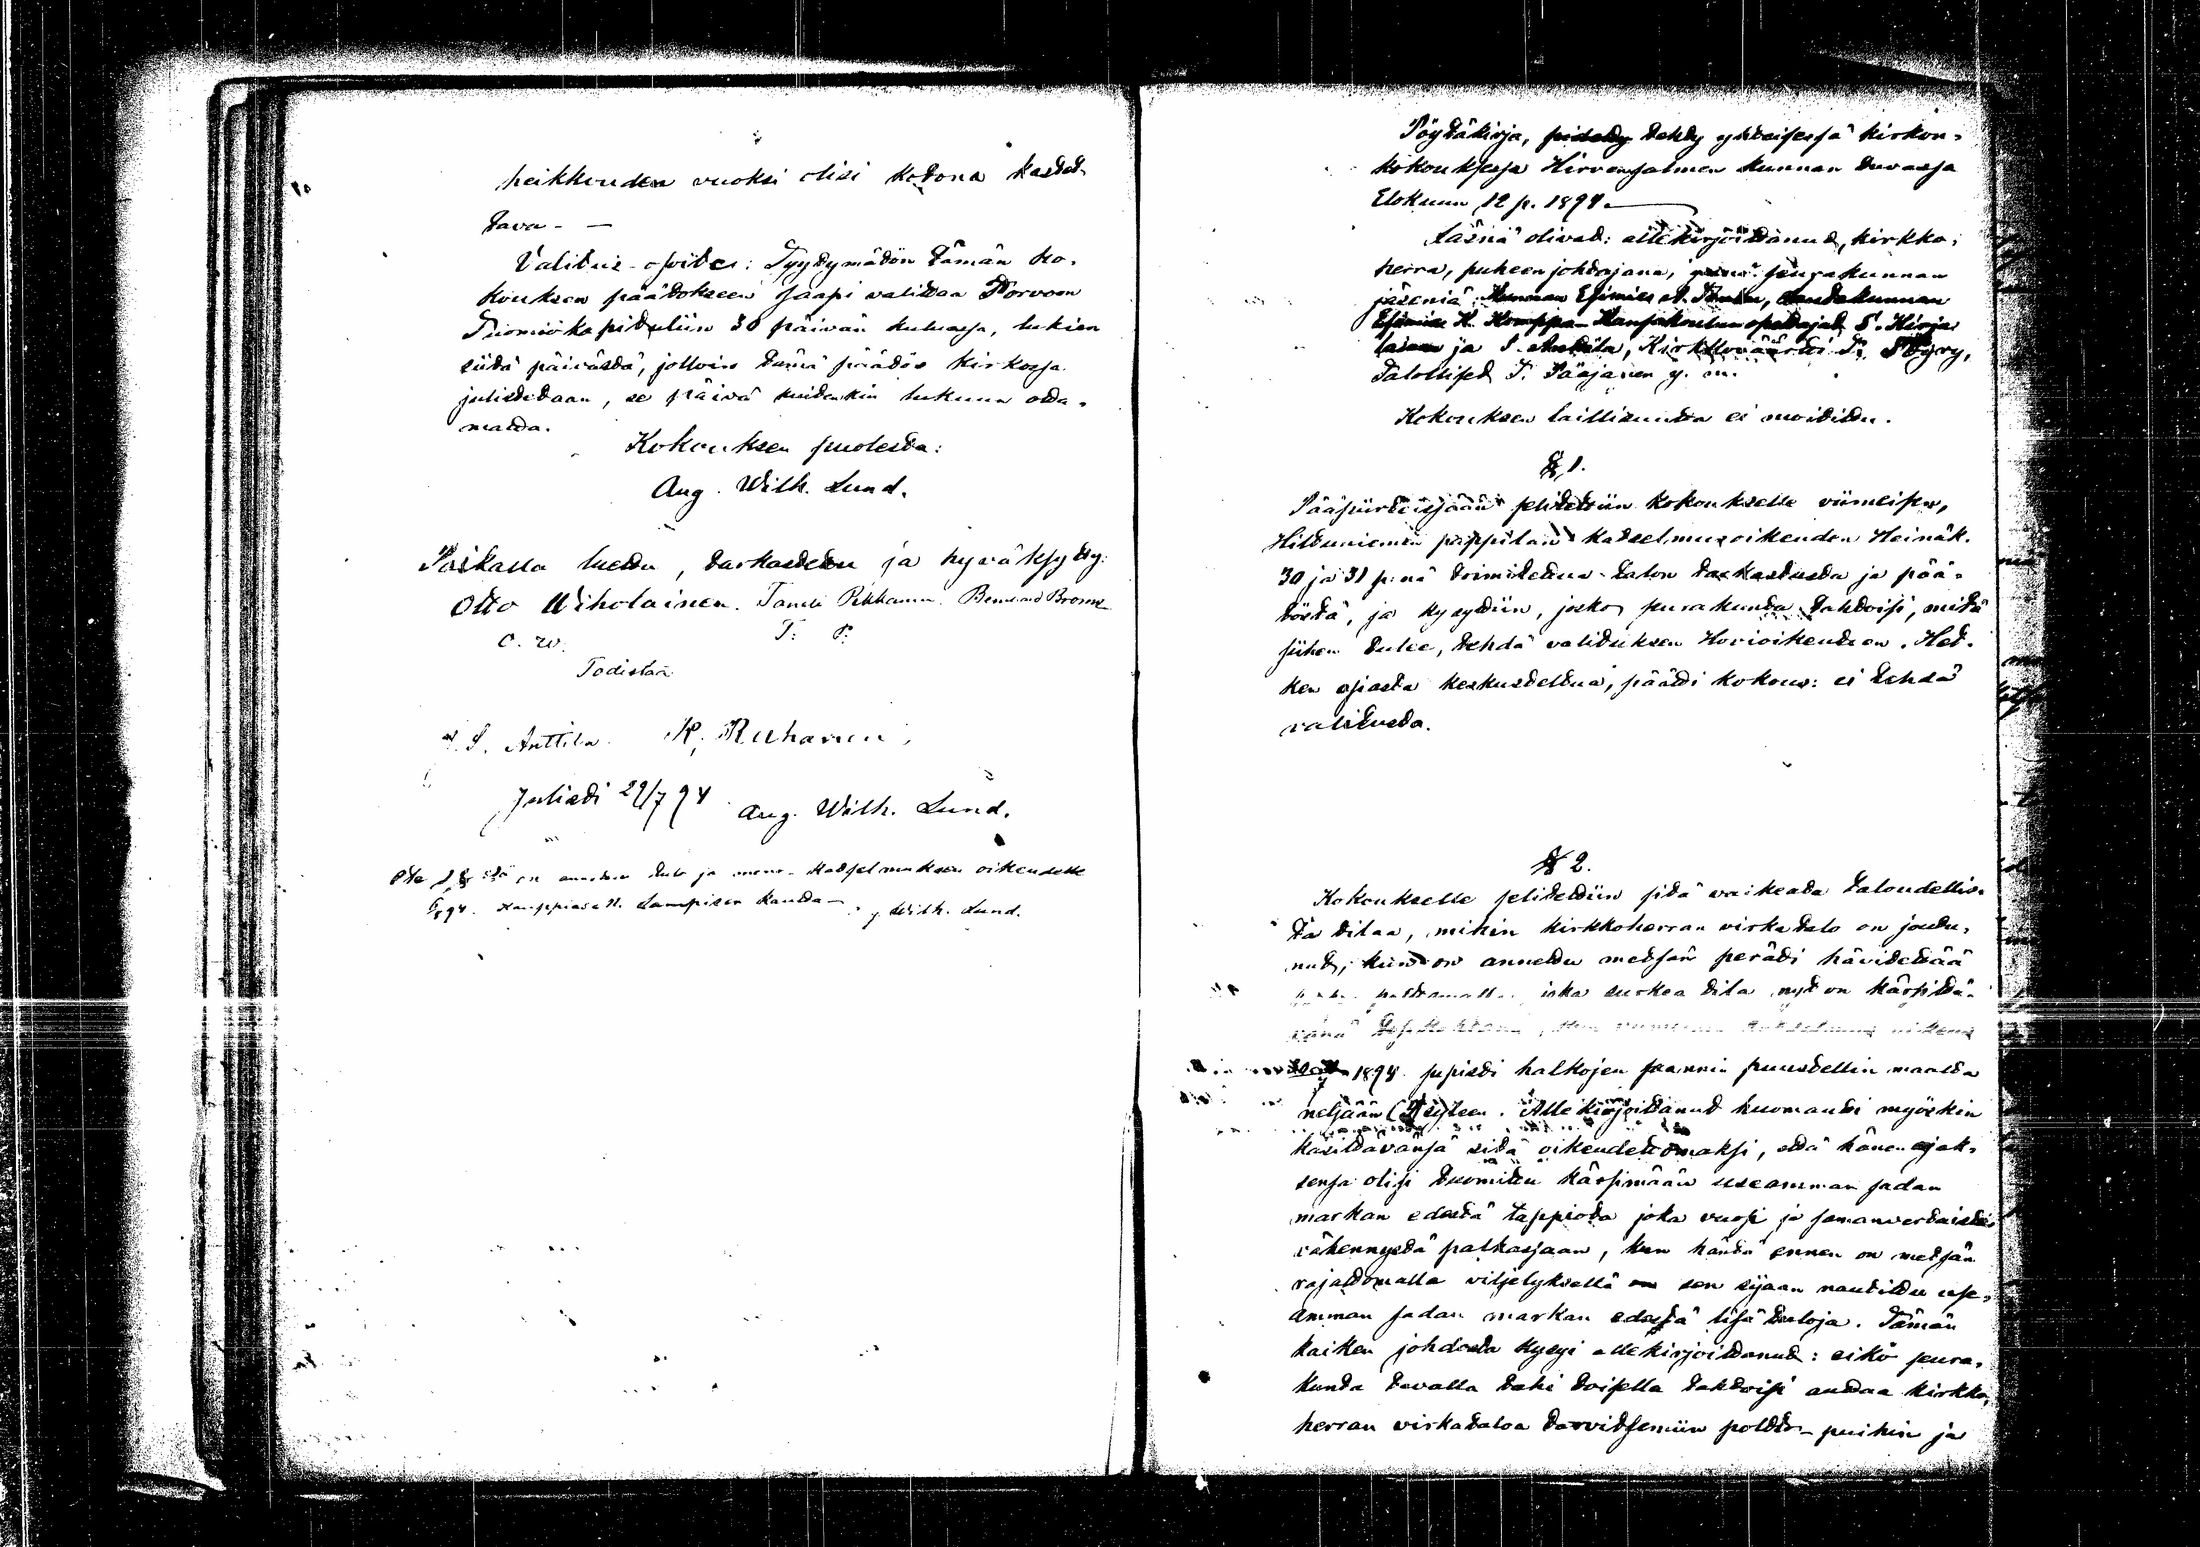 heikkouden vuoksi olisi kotona kastet-
tava. —
Valitus-osoitus: Tyytymätön tämän ko-
kouksen päätökseen saapi valittaa Porvoon
Tuomiokapituliin 30 päivän kuluessa, lukien
siitä päivästä, jolloin tämä päätös kirkossa
julistetaan, se päivä kuitenkin lukuun otta-
matta.
Kokouksen puolesta:
Aug. Wilh. Lund.
Paikalla luettu, tarkastettu ja hyväksytty:
Otto Wiholainen. Taneli Pekkanen. Bernhard Broms
O. W. T. P.
Todistaa
S. Anttila. K. Ruhanen.
Julisti 29/7 94 Aug. Wilh. Lund.
on annettu katselmuksen oikeudelle
Kauppias Lampisen kautta — Wilh. Lund.
Pöytäkirja, tehty yhteisessä kirkon-
kokouksessa Hirvensalmen kunnan tuvassa
Elokuun 12 p. 1894.
Läsnä olivat: allekirjoittanut, kirkko-
herra, puheenjohtajana, seurakunnan
jäseniä: Kunnan Esimies lautakunnan
Esimies K. Komppa Kansakoulun opettajat S. Hirja-
lainen ja S. Anttila, Kirkkoväärti P. Pöyry,
Talolliset T. Pääjanen y. m.
Kokouksen laillisuutta ei moitittu.
§ 1.
Pääpiirteissään selitettiin kokoukselle viimeisen,
Hiltuniemen pappilan katselmusoikeuden Heinäk.
30 ja 31 p:nä toimitettua talon tarkastusta ja pää-
töstä, ja kysyttiin, josko seurakunta tahtoisi, mitä
siihen tulee, tehdä valituksen Hovioikeuteen. Het-
ken asiasta keskusteltua, päätti kokous: ei tehdä
valitusta.
§ 2.
Kokoukselle selitettiin sitä vaikeata taloudellis-
ta tilaa, mihin kirkkoherran virkatalo on joutu-
nut, kun on annettu metsän peräti hävitettää
joka surkea tila nyt on kärsittä-
vänä
1894 supisti halkojen saannin puustellin maalta
neljään (4) syleen. Allekirjoittanut huomautti myöskin
käsittävänsä sitä oikeudettomaksi, että hänen ajak-
sensa olisi tuomittu kärsimään useamman sadan
markan edestä tappiota joka vuosi ja samanvertaista
vähennystä palkassaan, kun häntä ennen on metsän
rajattomalla viljelyksellä sen sijaan nautittu use-
amman sadan markan edestä lisä tuloja. Tämän
kaiken johdosta kysyi allekirjoittanut: eikö seura-
kunta tavalla tahi toisella tahtoisi auttaa kirkko-
herran virkataloa tarvitsemiin poltto-puihin ja